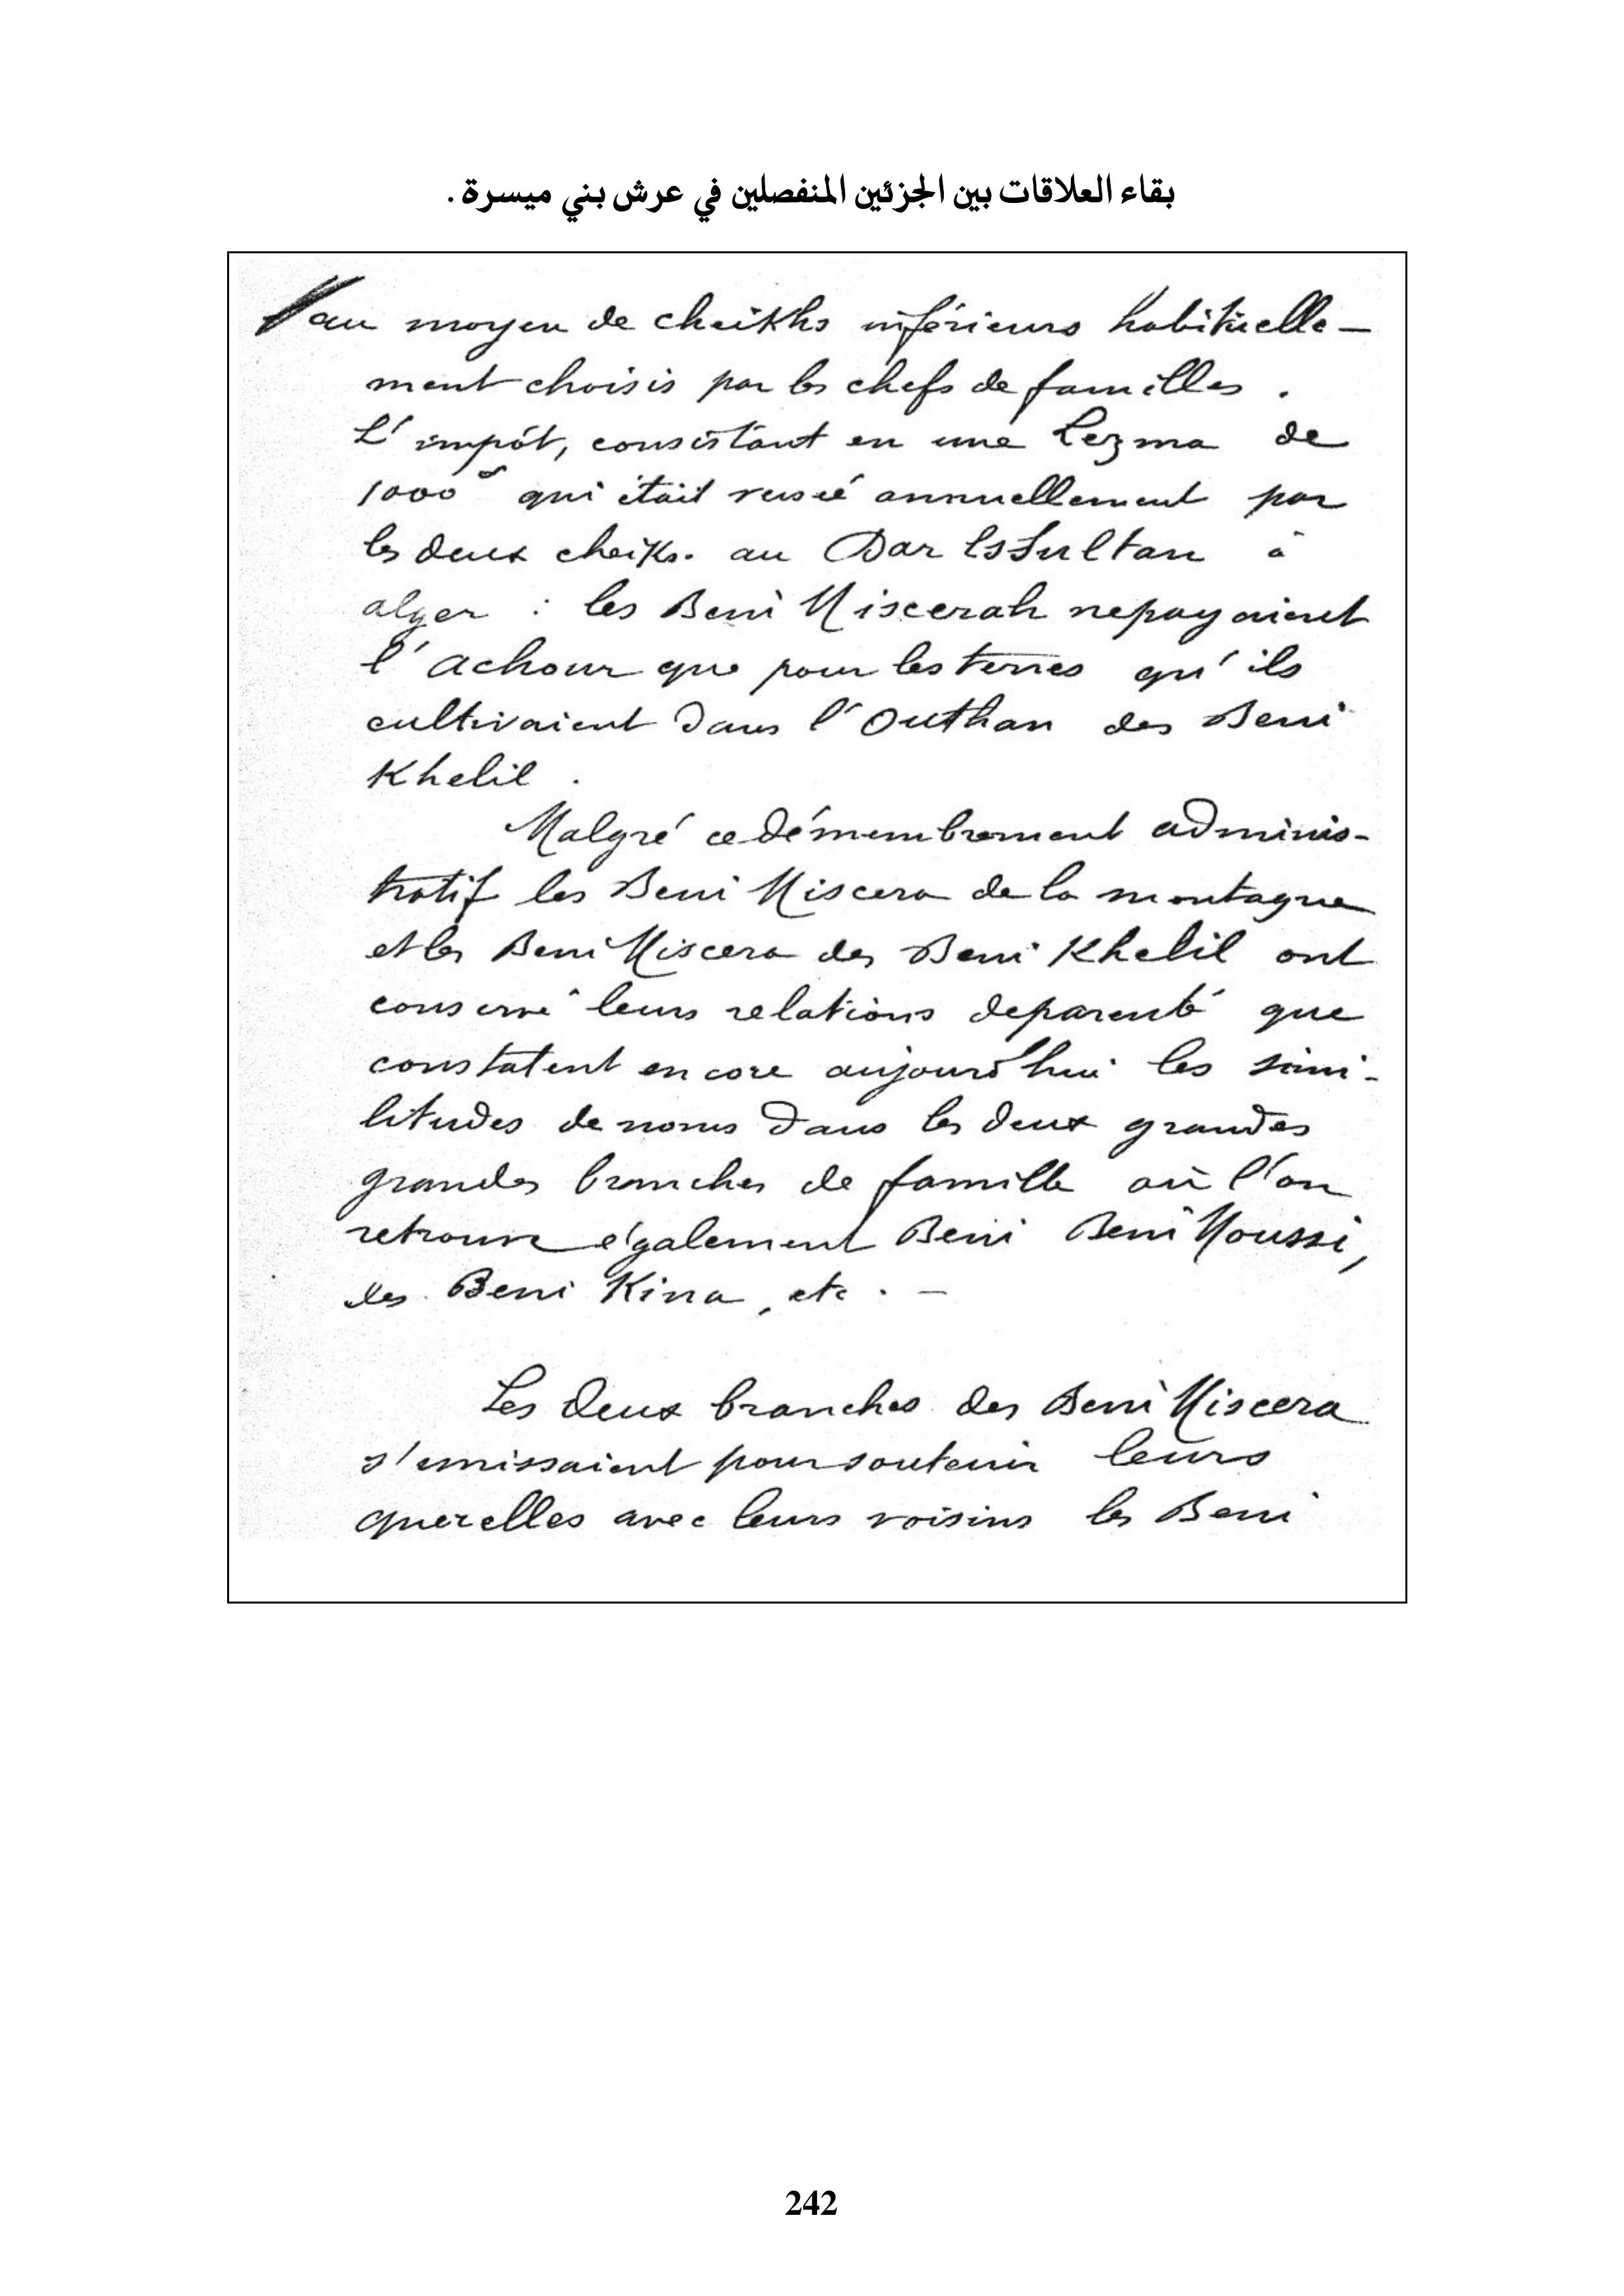 بقاء العلاقات بين الجزئين المنفصلين في عرش بني ميسرة .
au moyen de cheikhs inférieurs habituelle-
ment choisis par les chefs de familles .
L'impôt, consistant en une Lezma de
1000 qui était versé annuellement par
les deux cheiks. au Dar EsSultan à
alger : les Beni Miscerah ne payaient
l'achour que pour les terres qu'ils
cultivaient dans l'Outhan des Beni
Khelil .
Malgré ce démembrement adminis-
tratif les Beni Miscera de la montagne
et les Beni Miscera des Beni Khelil ont
conservé leurs relations de parenté que
constatent encore aujourd'hui les simi-
litudes de noms dans les deux grandes
grandes branches de famille où l'on
retrouve également Beni Beni Moussi,
les Beni Kina, etc . —
Les deux branches des Beni Miscera
s'unissaient pour soutenir leurs
querelles avec leurs voisins les Beni
242